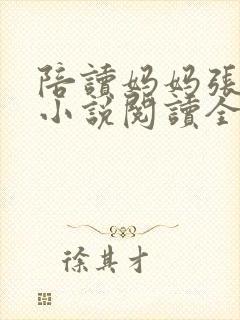 陪讀妈妈張
小說閱讀全
徐其才